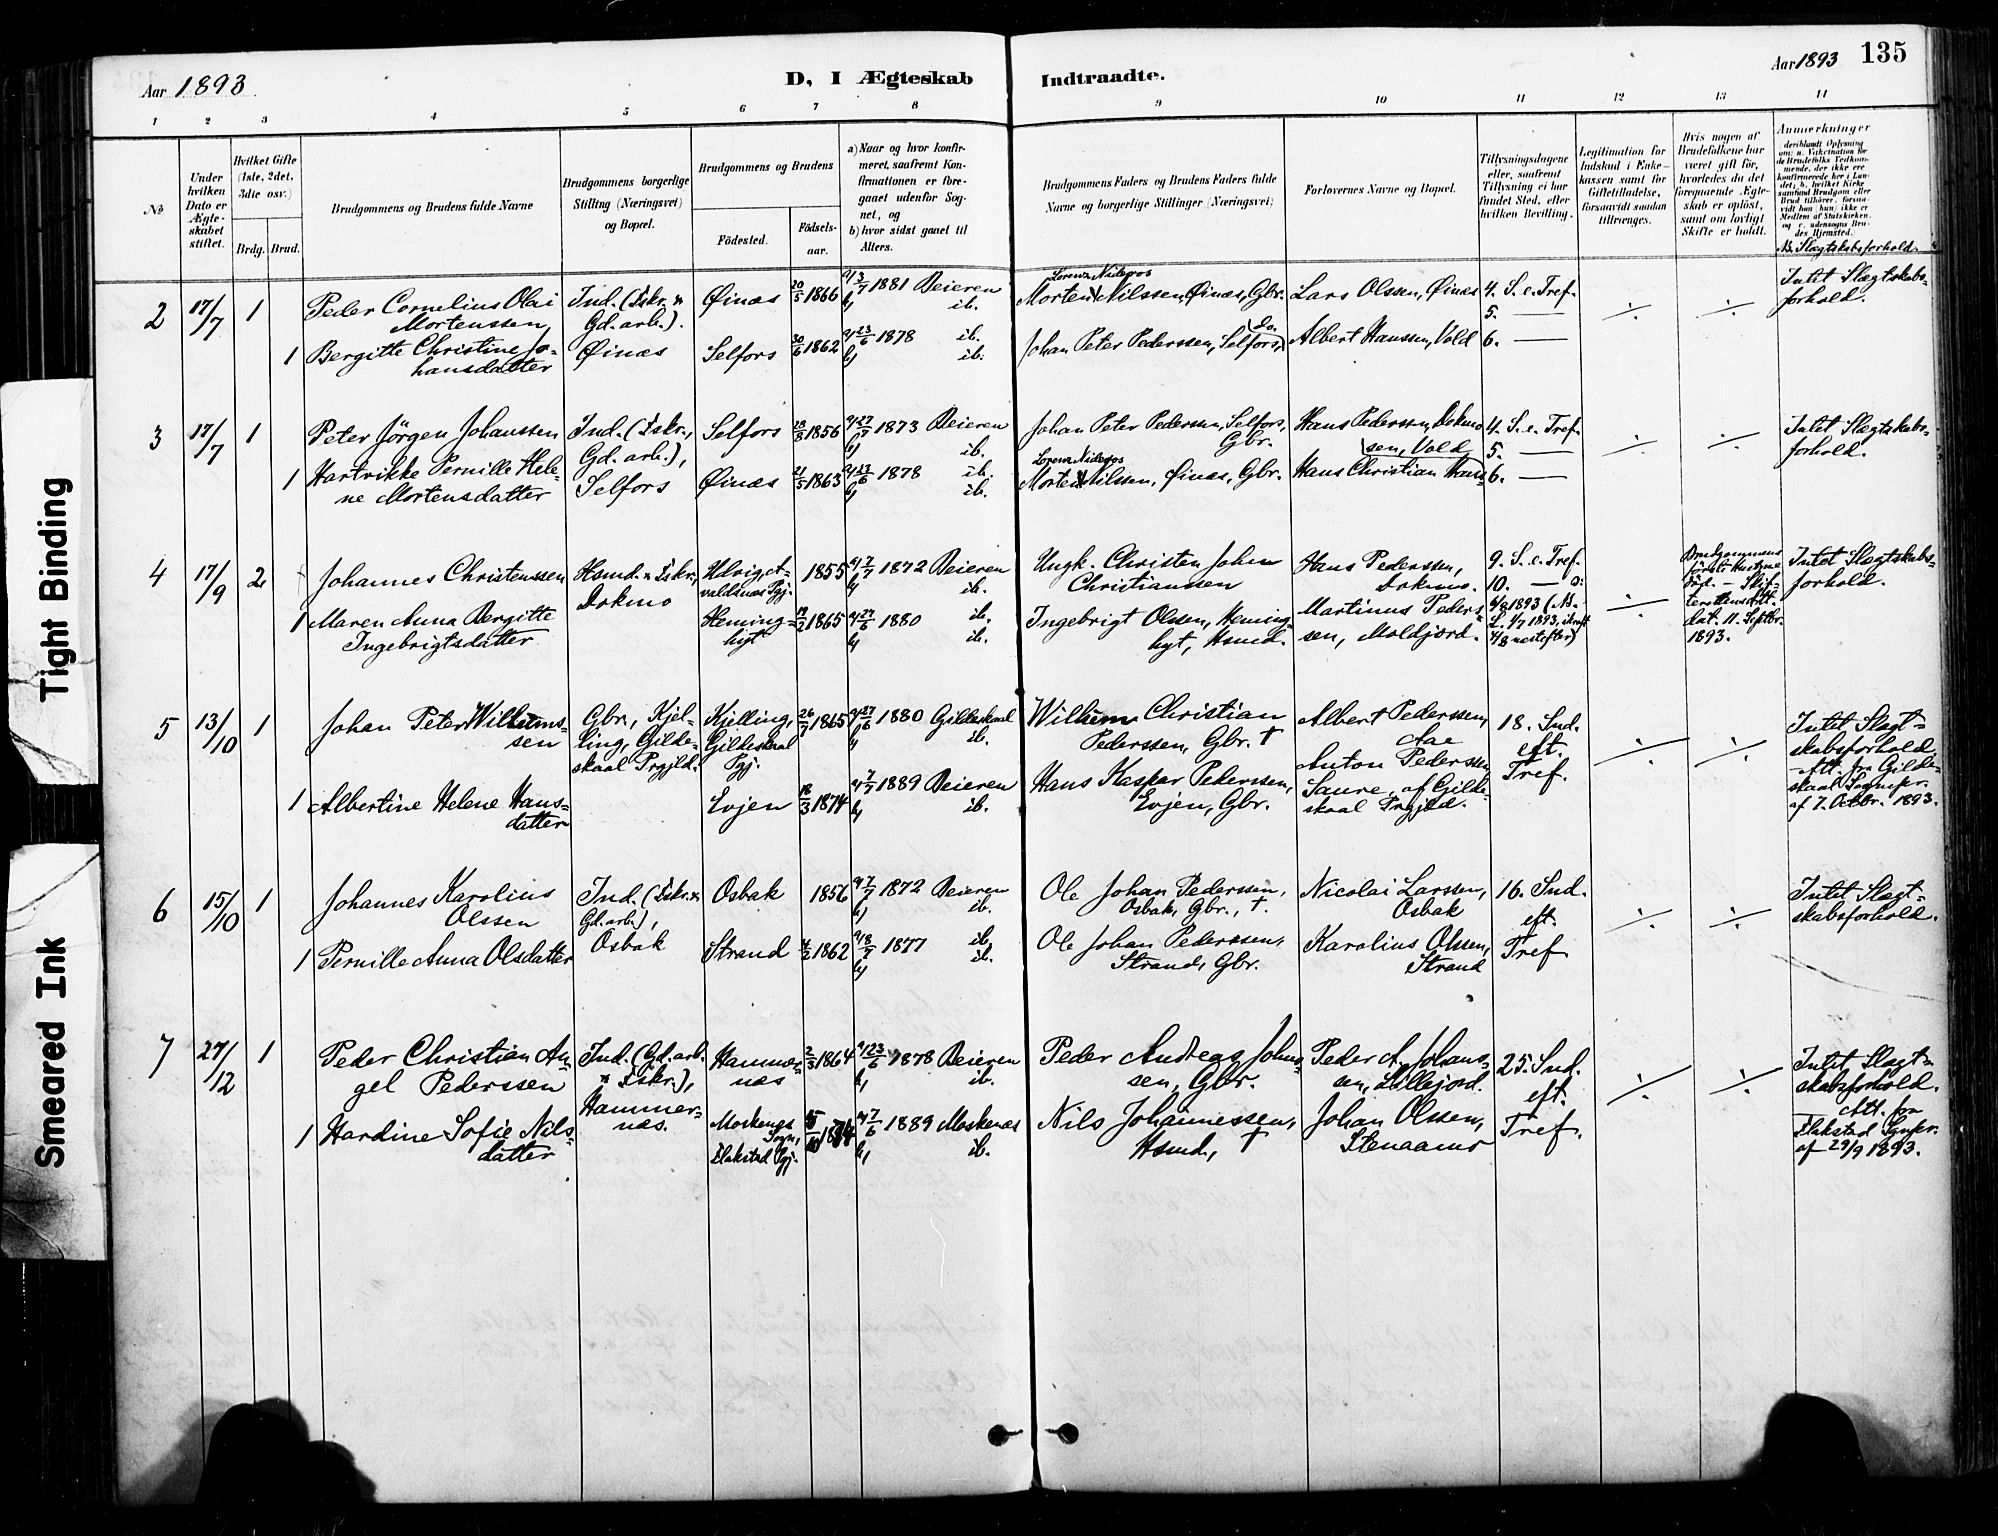 Aar 1893.
D, I Ægteskab
Indtraadte.
Aar 1893
135
1 2 3 4 5 6 7 8 9 10 11 12 13 14
No
Under hvilken Dato er Ægte-skabet stiftet.
Hvilket Gifte (1ste, 2det, 3die osv.)
Brdg. Brud.
Brudgommens og Brudens fulde Navne
Brudgommens borgerlige Stilling (Næringsvei) og Bopæl.
Brudgommens og Brudens
Födested.
Födsels-aar.
a) Naar og hvor konfir-meret, saafremt Kon-firmationen er fore-gaaet udenfor Sog-net, og
b) hvor sidst gaaet til Alters.
Brudgommens Faders og Brudens Faders fulde Navne og borgerlige Stillinger (Næringsvei)
Forlovernes Navne og Bopæl.
Tillysningsdagene eller, saafremt Tillysning ei har fundet Sted, efter hvilken Bevilling.
Legitimation for Indskud i Enke-kassen samt for Giftetilladelse, forsaavidt saadan tiltrænges.
Hvis nogen af Brudefolkene har været gift för, hvorledes da det foregaaende Ægte-skab er oplöst, samt om lovligt Skifte er holdt.
Anmærkninger
No. Slægtskabsforhold.
2 17/7 1
Peder Cornelius Olai
Mortenssen,
Ind. (Fiskr. &
Gd. arb.).
Øinæs
20/5 1866
a) 3/7 1881 Beieren
b) ib.
Lorenz Nideros
Morten Nilssen, Øinæs, Gbr.
Lars Olssen, Øinæs
4. S. e. Tref.
5. —
÷ ÷
Intet Slægtskabs-
forhold.
1 Bergitte Christine Jo-
hansdatter
Øinæs
Selfors
30/6 1862
a) 23/6 1878 ib.
b) ib.
Johan Peter Pederssen, Selfors, do.
Albert Hanssen, Vold
6. —
3 17/7 1
Peter Jörgen Johanssen
Ind. (Fiskr.,
Gd. arb.),
Selfors
Selfors
1856
a) 27/7 1873 Beieren
b) ib.
Johan Peter Pederssen, Selfors,
Gbr.
Hans Pederssen, Dokmo
4. S. e. Tref.
5. —
÷ ÷
Intet Slægtskabs-
forhold.
1 Hartvikke Pernille Hele-
ne Mortensdatter
Øinæs
21/5 1863
a) 23/6 1878 ib.
b) ib.
Lorenz Nideros
Morten Nilssen, Øinæs, Gbr.
Hans Christian Hans-
sen, Vold
6. —
4 17/9 2
Johannes Christenssen
Hsmd. & Fiskr.,
Dokmo
1855
a) 7/7 1872 Beieren
b) ib.
Ungk. Christen John
Christianssen
Hans Pederssen,
Dokmo.
9. S. e. Tref.
10. —
÷
dat. 11. Septbr.
1893.
Intet Slægtskabs-
forhold.
1 Maren Anna Bergitte
Ingebrigtsdatter
Heming-
hyt
1865
a) 27/6 1880 ib.
b) ib.
Ingebrigt Olssen, Heming-
hyt, Hsmd.
Martinus Peders-
sen, Moldjord.
5 13/10 1
Johan Peter Wilhelms-
sen
Gbr., Kjel-
ling, Gilde-
skaal Prgjld.
Kjelling,
Gildeskaal
Pgj.
26/7 1865
a) 27/6 1880 Gildeskaal
b) ib.
Wilhem Christian
Pederssen, Gbr. †
Albert Pederssen,
Aae
18. Snd.
eft.
Tref.
÷ ÷
Intet Slægt-
skabsforhold.
— Att. fra Gilde-
skaal Sognepr.
af 7. Octbr. 1893.
1 Albertine Helene Hans-
datter
Evjen
18/3 1871
a) 7/7 1889 Beieren
b) ib.
Hans Kaspar Pederssen,
Evjen, Gbr.
Anton Pederssen,
Saure, af Gilde-
skaal Prgjld.
6 15/10 1
Johannes Karolius
Olssen
Ind. (Fiskr. &
Gd. arb.),
Osbak
Osbak
1856
a) 7/7 1872 Beieren
b) ib.
Ole Johan Pederssen,
Osbak, Gbr., †.
Nicolai Larssen,
Osbak
16. Snd.
eft.
Tref
÷ ÷
Intet Slægt-
skabsforhold.
1 Pernille Anna Olsdatter
Strand
1862
a) 8/7 1877 ib.
b) ib.
Ole Johan Pederssen,
Strand, Gbr.
Karolius Olssen,
Strand
7 27/12 1
Peder Christian An-
gel Pederssen
Ind. (Gd. arb.
& Fiskr.),
Hammer-
næs.
Hammer-
næs
2/3 1864
a) 23/6 1878 Beieren
b) ib.
Peder Andreas Johns-
sen, Gbr.
Peder A. Johans-
sen, Lillejord.
25. Snd.
eft.
Tref.
÷ ÷
Intet Slægt-
skabsforhold.
— Att. fra
Flakstad Sgnpr.
af 29/9 1893.
1 Hardine Sofie Nils-
datter
Moskenes
Sogn,
Flakstad Pgj.
a) 7/6 1889 Moskenæs
b) ib.
Nils Johannessen,
Hsmd, †
Johan Olssen,
Stenaamo
Tight Binding
Smeared Ink